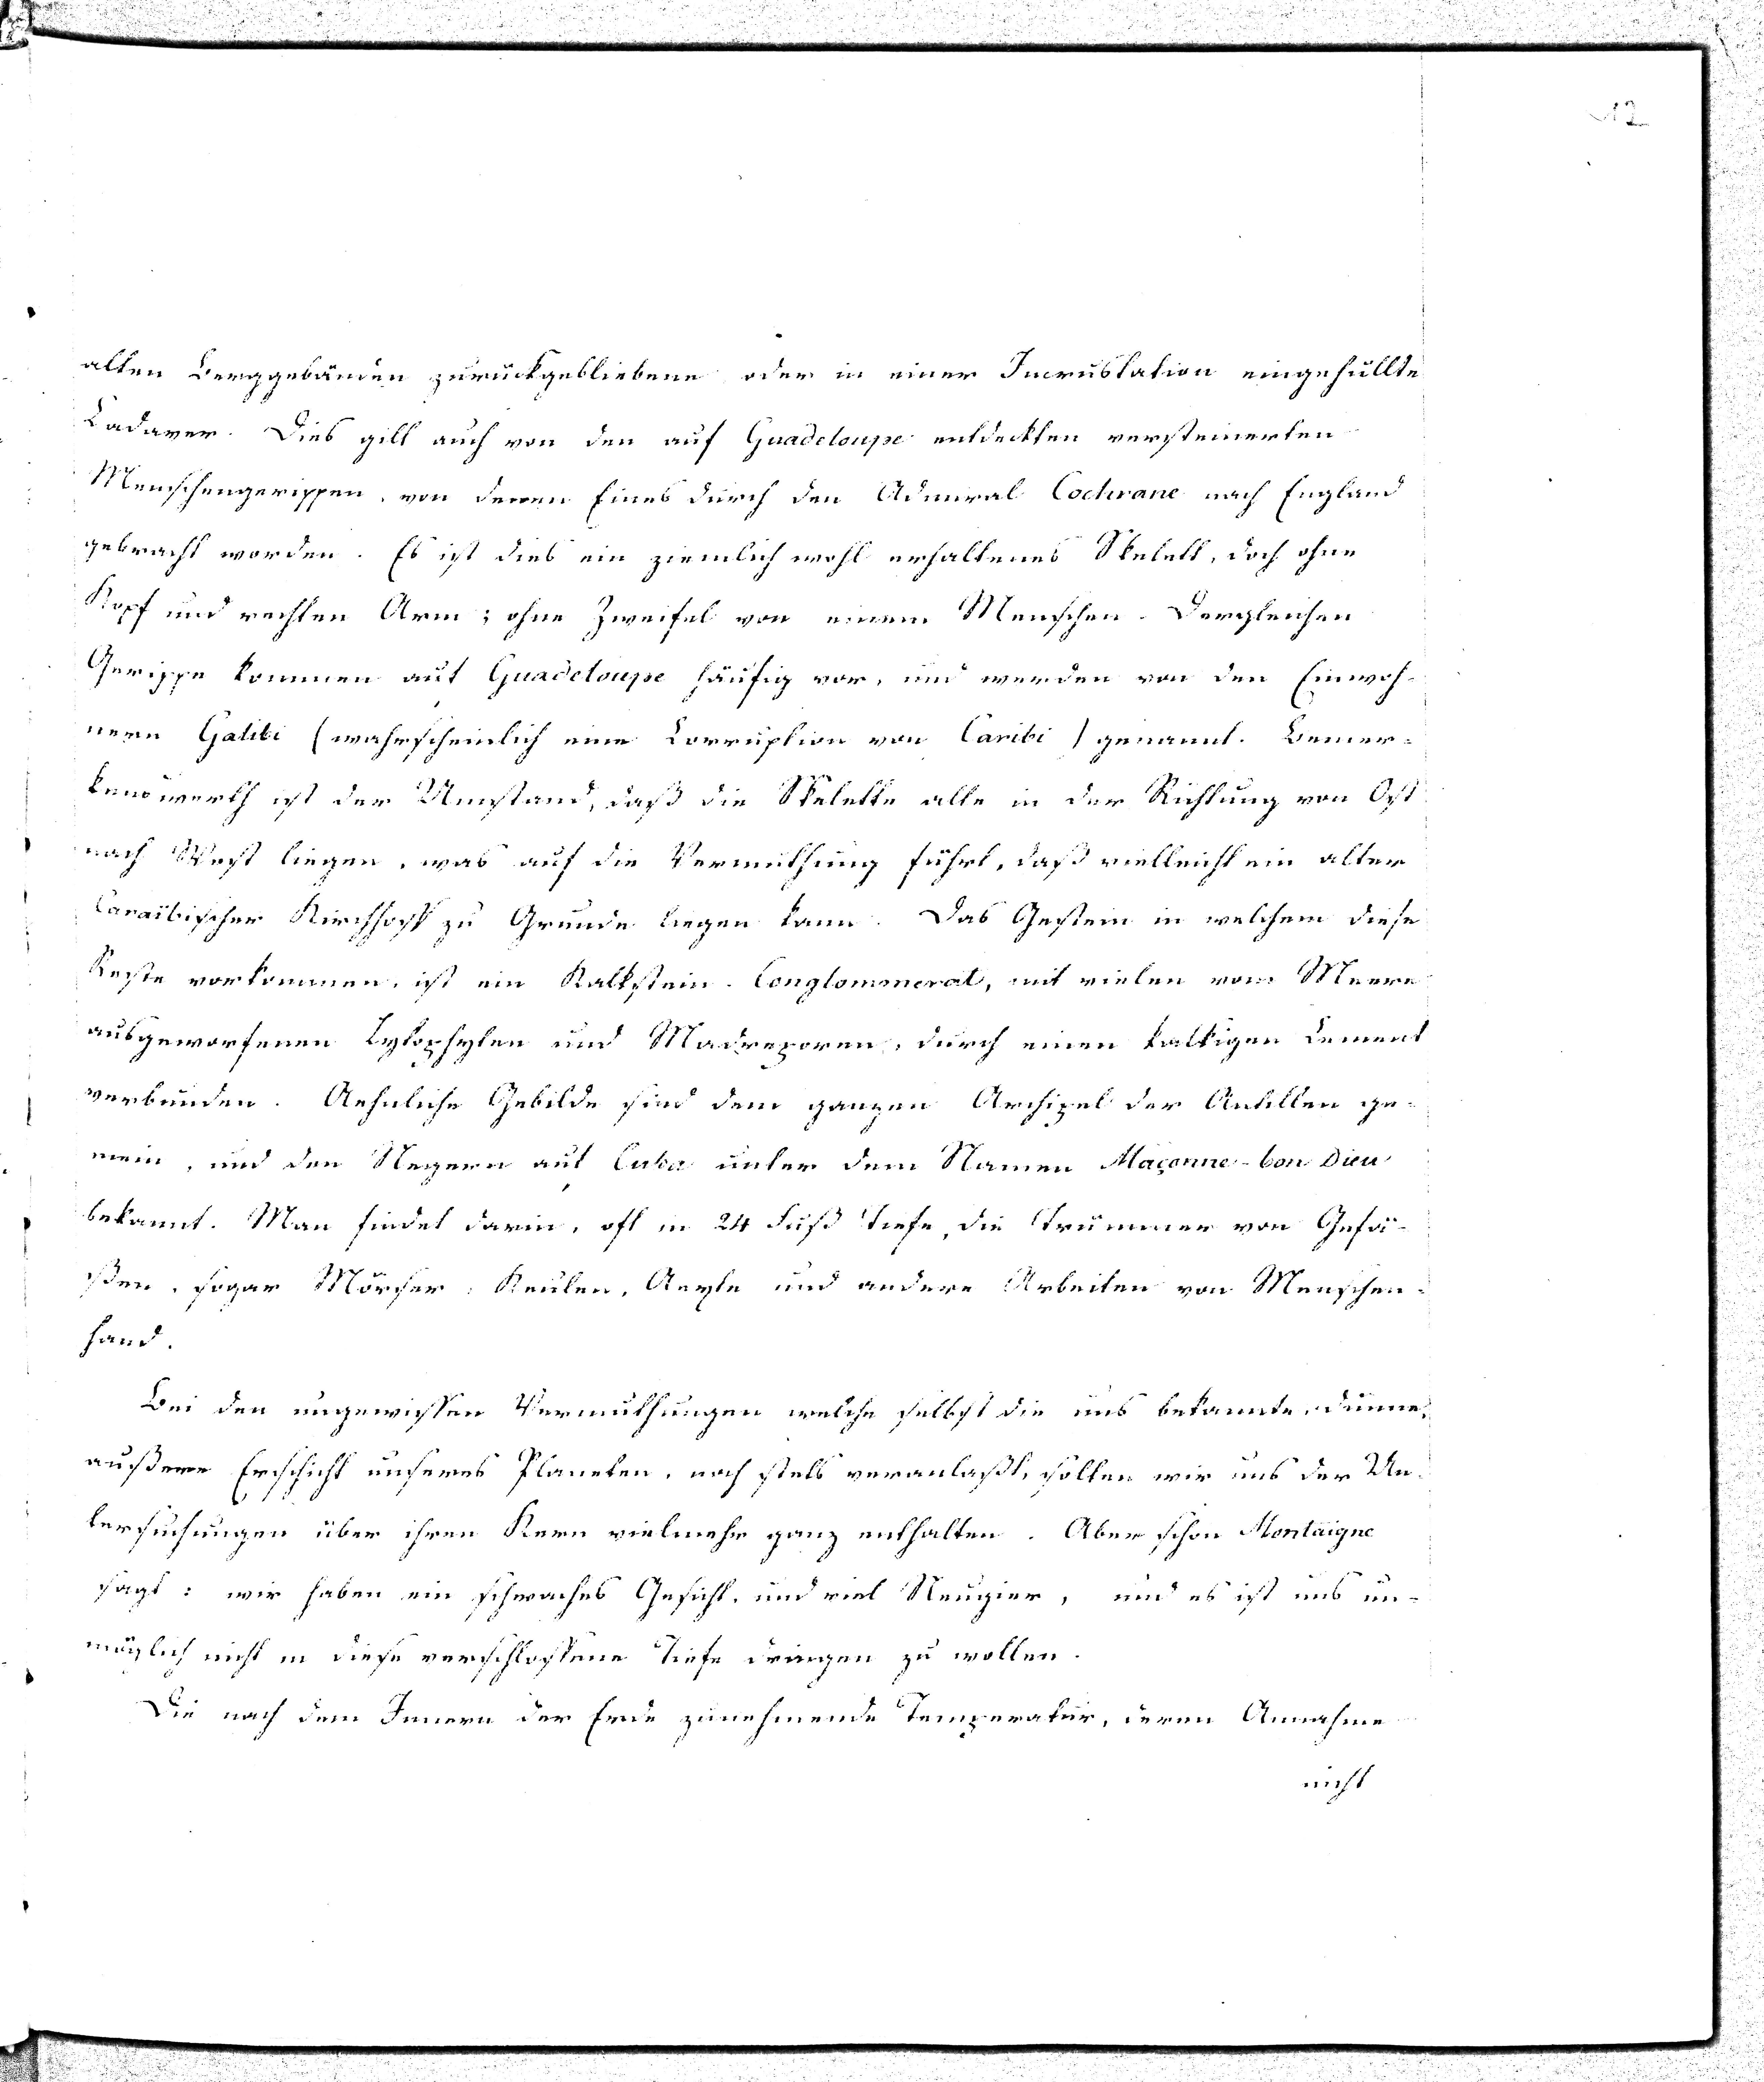 12
alten Berggebäuden zurückgebliebene oder in einer Incrustation eingehüllte
Cadaver. Dies gilt auch von den auf Guadeloupe entdeckten versteinerten
Menschengerippen, von denen Eines durch den Admiral Cochrane nach England
gebracht worden. Es ist dies ein ziemlich wohl erhaltenes Skelett, doch ohne
Kopf und rechten Arm; ohne Zweifel von einem Menschen. Dergleichen
Gerippe kommen auf Guadeloupe häufig vor, und werden von den Einwoh-
nern Galibi (wahrscheinlich eine Corruption von Caribi) genannt. Bemer-
kenswerth ist der Umstand, daß die Skelette alle in der Richtung von Ost
nach West liegen, was auf die Vermuthung führt, daß vielleicht ein alter
Caraibischer Kirchhoff zu Grunde liegen kann. Das Gestein in welchem diese
Reste vorkommen, ist ein Kalkstein-Conglommerat, mit vielen vom Meere
ausgeworfenen Lytophyten und Madreporen, durch einen kalkigen Cement
verbunden. Aehnliche Gebilde sind dem ganzen Archipel der Antillen ge-
mein, und den Negern auf Cuba unter dem Namen Maçonne-bon Dieu
bekannt. Man findet darin, oft in 24 Fuß Tiefe, die Trümmer von Gefä-
ßen, sogar Mörser, Keulen, Aexte und andere Arbeiten von Menschen-
hand.
Bei den ungewissen Vermuthungen welche selbst die uns bekannte, dünne,
äußere Erdschicht unseres Planeten, noch stets veranlaßt, sollten wir uns der Un-
tersuchungen über ihren Kern vielmehr ganz enthalten. Aber schon Montaigne
sagt: wir haben ein schwaches Gesicht, und viel Neugier, und es ist uns un-
möglich nicht in diese verschlossene Tiefe dringen zu wollen.
Die nach dem Innern der Erde zunehmende Temperatur, deren Annahme
nicht